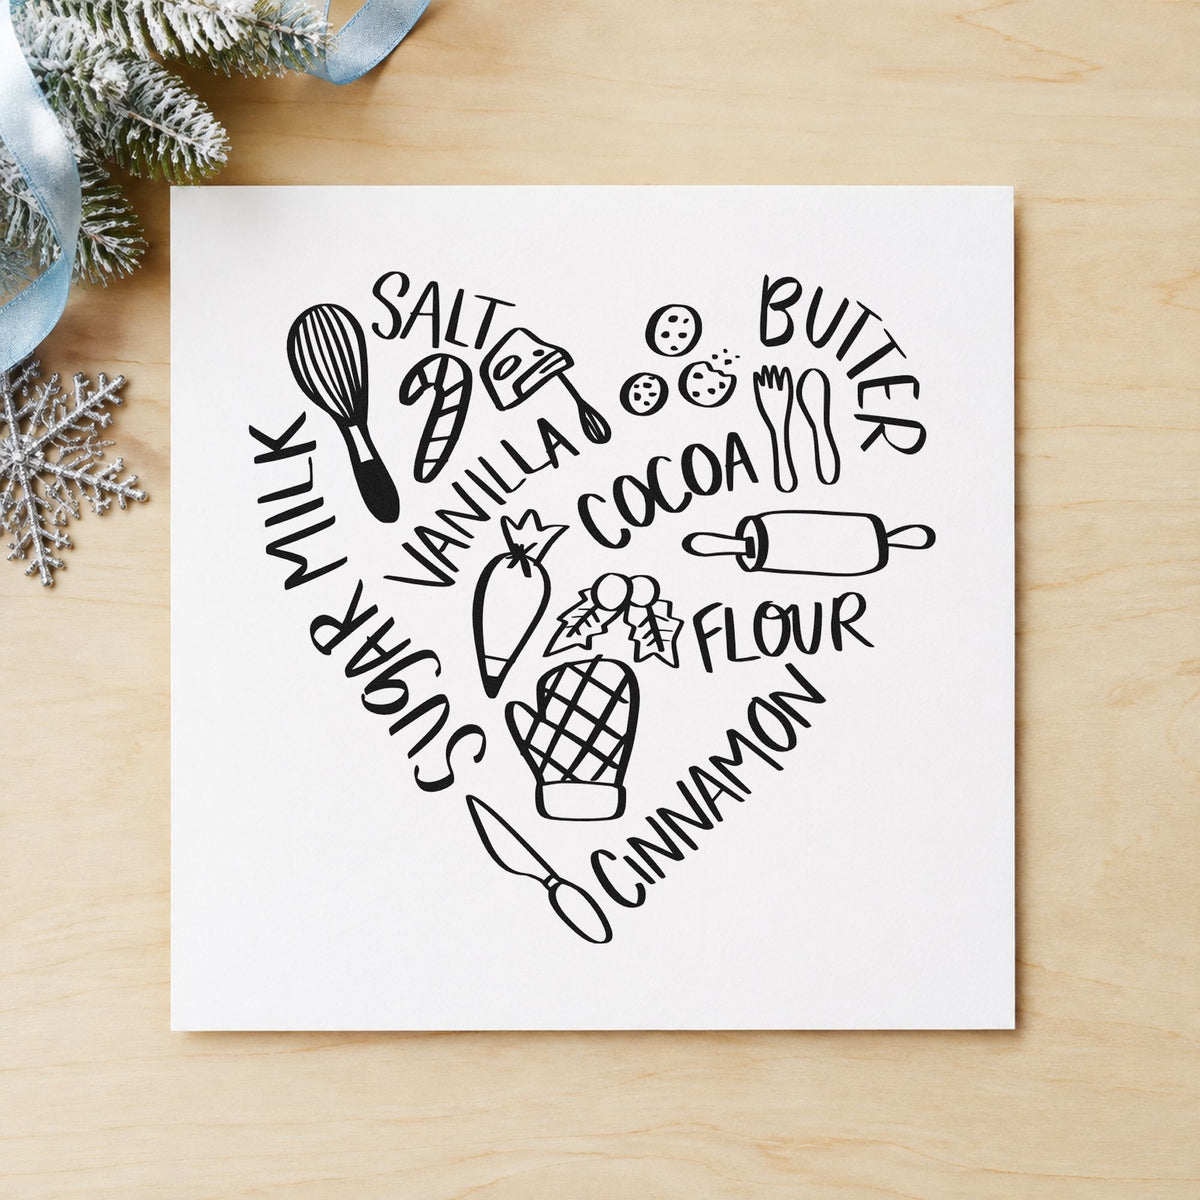 SALT
BUTTER
MILK
VANILLA
COCOA
SUGAR
FLOUR
CINNAMON